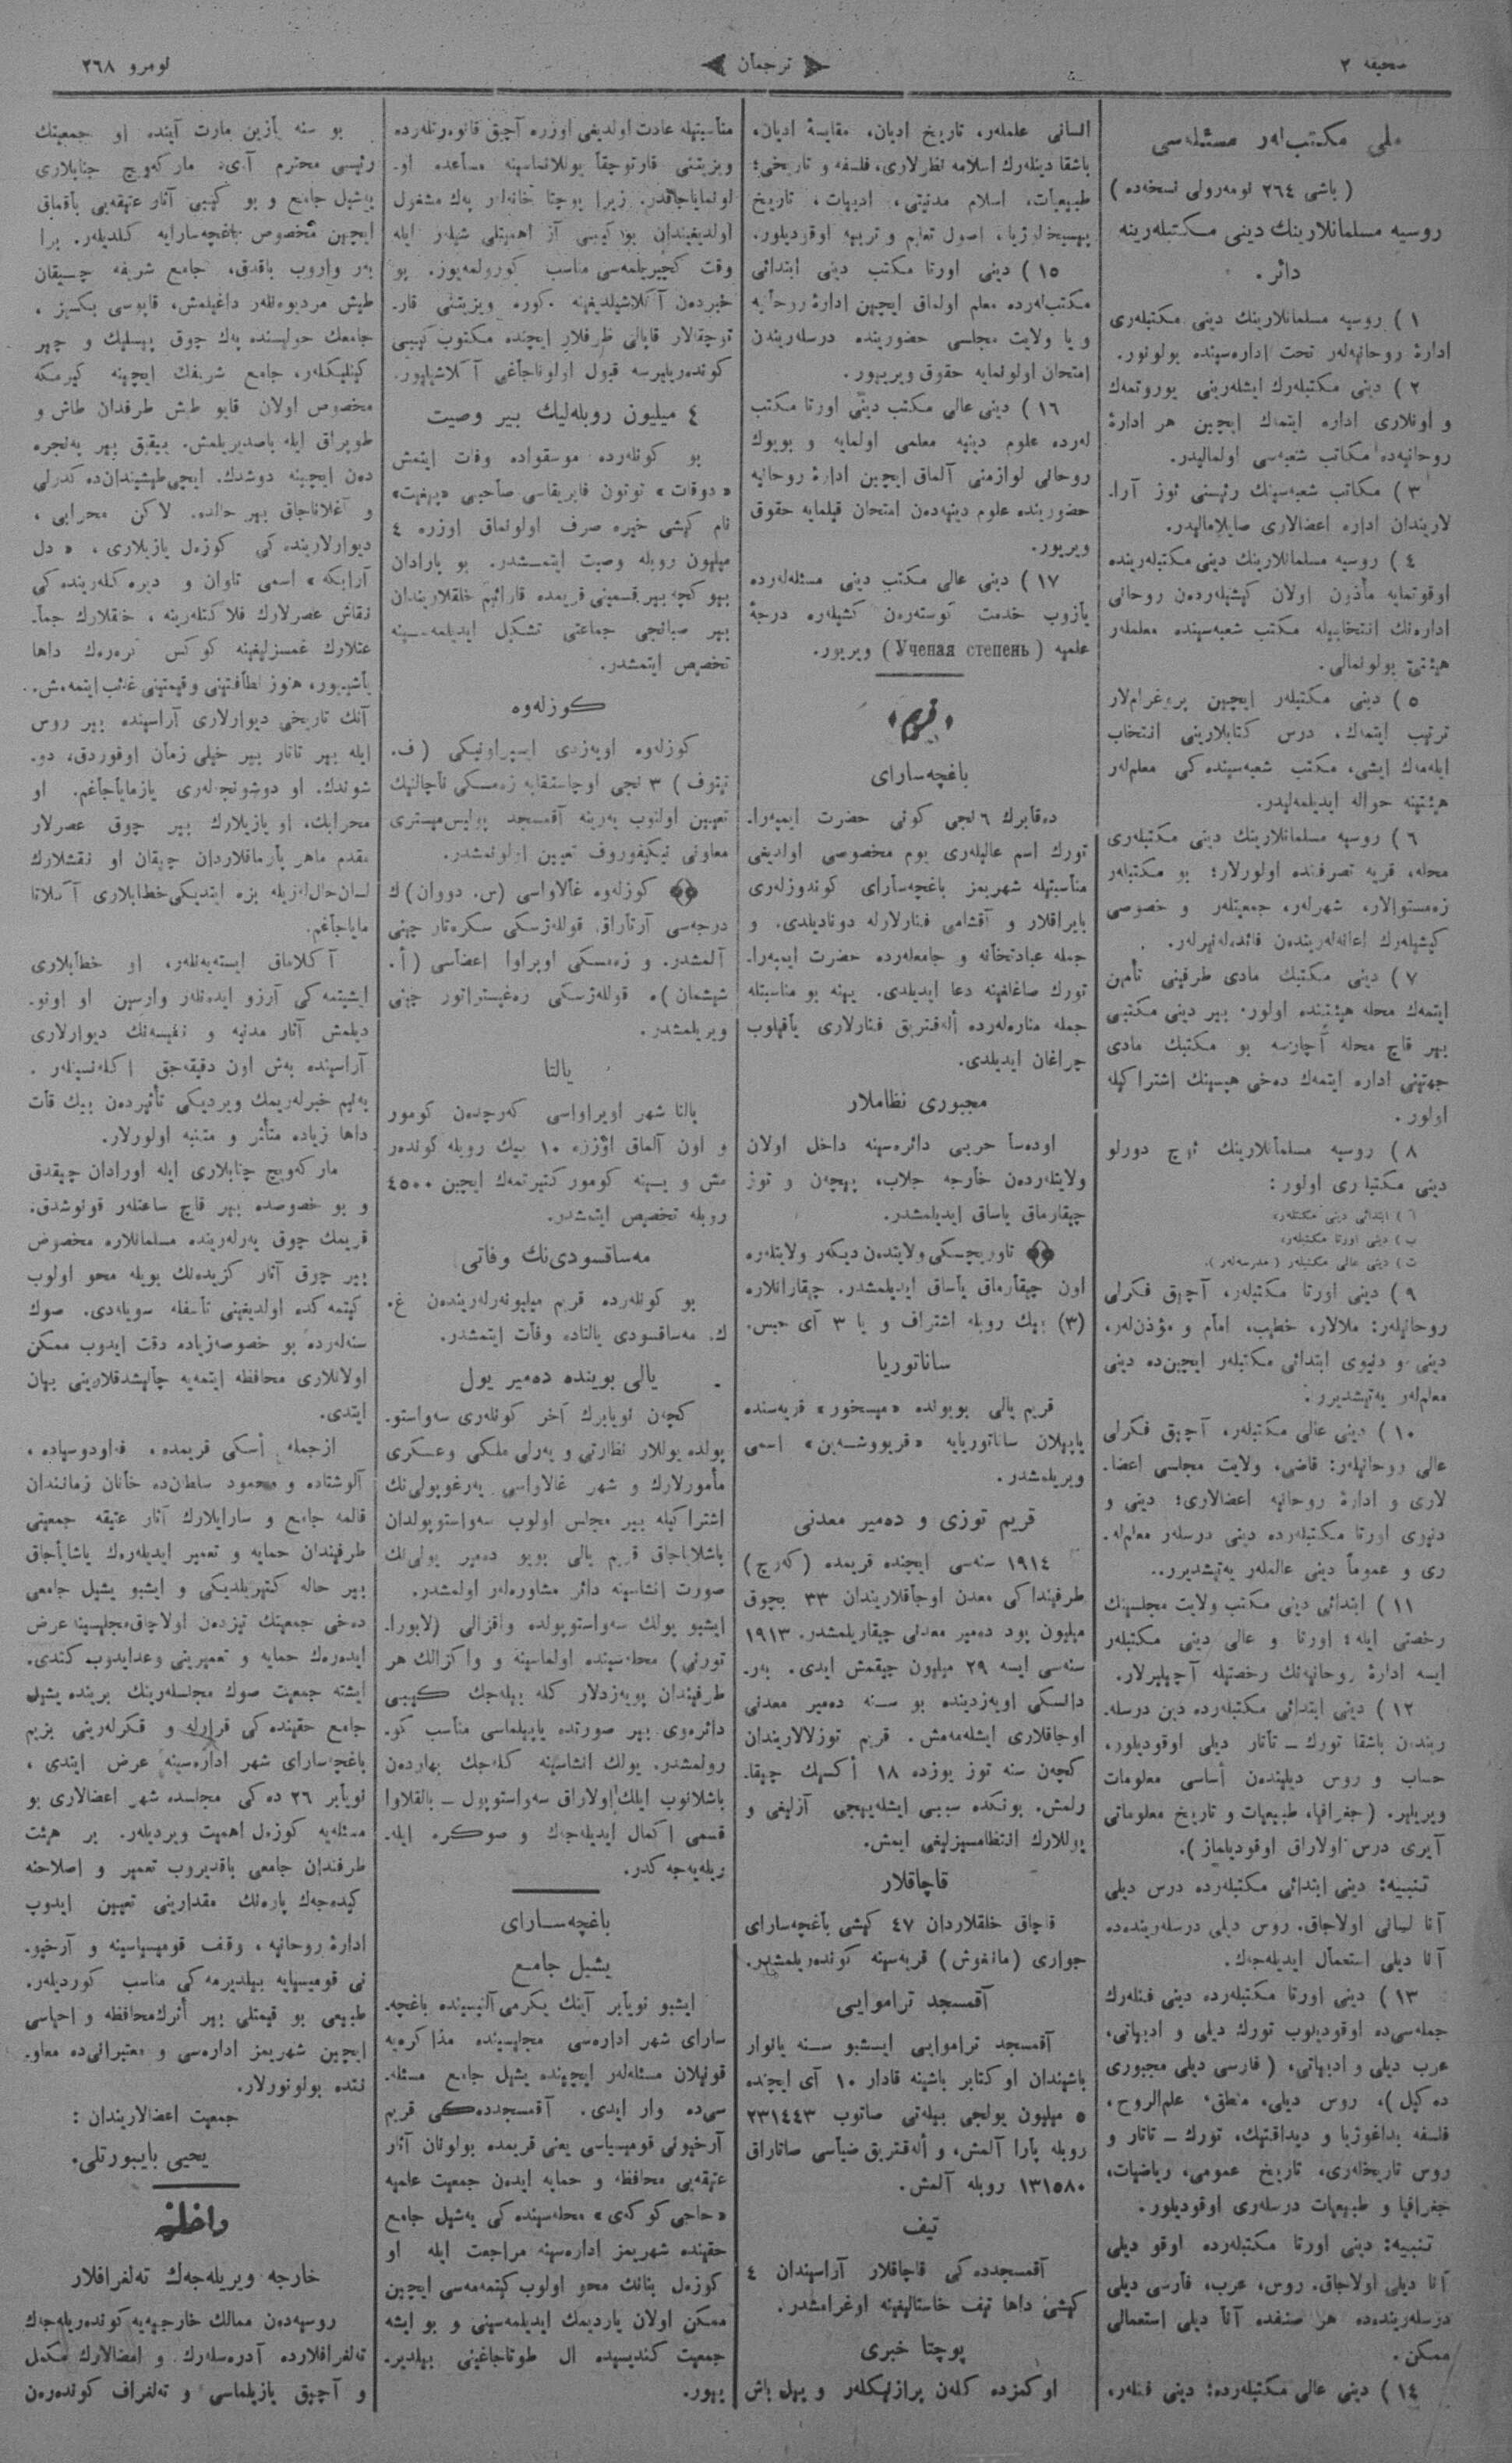 صحيفه ٢
ترجمان
نومرو ٢٦٨
ملی مكتبلەر مسئلەسی
( باشی ٢٦٤ نومەرولی نسخەدە )
روسيه مسلمانلارينك دينی مكتبلەرينه
دائر .
١ ) روسيه مسلمانلارينك دينی مكتبلەری
ادارۀ روحانيەلەر تحت ادارەسينده بولونور.
٢ ) دينی مكتبلەرك ايشلەرينی يوروتمەك
و اونلاری اداره ايتمك ايچين هر ادارۀ
روحانيەده مكاتب شعبەسی اولماليدر.
٣ ) مكاتب شعبەسينك رئيسنی ئوز آرا-
لاريندان اداره اعضالاری صايلاماليدر.
٤ ) روسيه مسلمانلارينك دينی مكتبلەرينده
اوقوتمايه مأذون اولان كيشيلەردەن روحانی
ادارەنك انتخابيله مكتب شعبەسينده معلملەر
هيئتی بولونمالی.
٥ ) دينی مكتبلەر ايچين پروغراملار
ترتيب ايتمك، درس كتابلارينی انتخاب
ايلەمەك ايشی، مكتب شعبەسيندەكی معلملەر
هيئتينه حواله ايديلمەليدر.
٦ ) روسيه مسلمانلارينك دينی مكتبلەری
محله، قريه تصرفنده اولورلار؛ بو مكتبلەر
زەمستوالار، شهرلەر، جمعيتلەر و خصوصی
كيشيلەرك اعانەلەريندەن فائدەلەنيرلەر.
٧ ) دينی مكتبك مادی طرفينی تأمين
ايتمەك محله هيئتينده اولور. بير دينی مكتبی
بير قاچ محله آچارسه بو مكتبك مادی
جهتينی اداره ايتمەك دەخی هيسينك اشتراكيله
اولور .
٨ ) روسيه مسلمانلارينك ئوچ دورلو
دينی مكتبلری اولور :
ا ) ابتدائی دينی مكتبلەر،
ب ) دينی اورتا مكتبلەر،
ت ) دينی عالی مكتبلەر ( مدرسەلەر ).
٩ ) دينی اورتا مكتبلەر، آچيق فكرلی
روحانيلەر: ملالار، خطيب، امام و مؤذنلەر،
دينی و دنيوی ابتدائی مكتبلەر ايچيندە دينی
معلملەر يەتيشديرر.
١٠ ) دينی عالی مكتبلەر، آچيق فكرلی
عالی روحانيلەر: قاضی، ولايت مجلسی اعضا-
لاری و ادارۀ روحانيه اعضالاری؛ دينی و
دنيوی اورتا مكتبلەرده دينی درسلەر معلملە-
ری و عموماً دينی عالملەر يەتيشديرر..
١١ ) ابتدائی دينی مكتب ولايت مجلسينك
رخصتی ايله؛ اورتا و عالی دينی مكتبلەر
ايسه ادارۀ روحانيەنك رخصتيله آچيليرلار.
١٢ ) دينی ابتدائی مكتبلەرده دين درسلە-
ريندن باشقا تورك ـ تاتار ديلی اوقوديلور،
حساب و روس ديليندەن أساسی معلومات
ويريلير. (جغرافيا، طبيعيات و تاريخ معلوماتی
آيری درس اولاراق اوقوديلماز).
تنبيه: دينی ابتدائی مكتبلەرده درس ديلی
آنا ليسانی اولاجاق. روس ديلی درسلەريندەده
آنا ديلی استعمال ايديلەجەك.
١٣ ) دينی اورتا مكتبلەرده دينی فنلەرك
جملەسیدە اوقوديلوب تورك ديلی و ادبياتی،
عرب ديلی و ادبياتی، ( فارسی ديلی مجبوری
دەكيل )، روس ديلی، منطق، علم‌الروح،
فلسفه پداغوژيا و ديداقتيك، تورك ـ تاتار و
روس تاريخلەری، تاريخ عمومی، رياضيات،
جغرافيا و طبيعيات درسلەری اوقوديلور.
تنبيه: دينی اورتا مكتبلەرده اوقو ديلی
آنا ديلی اولاجاق. روس، عرب، فارسی ديلی
درسلەريندەده هر صنفده آنا ديلی استعمالی
ممكن.
١٤ ) دينی عالی مكتبلەرده: دينی فنلەر،
انسانی علملەر، تاريخ اديان، مقايسۀ اديان،
باشقا دينلەرك اسلامه نظرلاری، فلسفه و تاريخی؛
طبيعيات، اسلام مدنيتی، ادبيات، تاريخ
پسيخولوژيا، اصول تعليم و تربيه اوقوديلور.
١٥ ) دينی اورتا مكتب دينی ابتدائی
مكتبلەرده معلم اولماق ايچين ادارۀ روحانيه
و يا ولايت مجلسی حضورينده درسلەريندن
امتحان اولونمايه حقوق ويريور.
١٦ ) دينی عالی مكتب دينی اورتا مكتب
لەرده علوم دينيه معلمی اولمايه و بويوك
روحانی لوازمنی آلماق ايچين ادارۀ روحانيه
حضورينده علوم دينيەدەن امتحان قيلمايه حقوق
ويريور.
١٧ ) دينی عالی مكتب دينی مسئلەلەرده
يازوب خدمت كوستەرەن كشيلەره درجۀ
علميه (Ученая степень) ويريور.
«قريم»
باغچەسارای
دەقابرك ٦نجی كونی حضرت ايمپەرا-
تورك اسم عاليلەری يوم مخصوصی اولديغی
مناسبتيله شهريمز باغچەسارای كوندوزلەری
بايراقلار و آقشامی فنارلارله دوناديلدی. و
جمله عبادتخانه و جامعلەرده حضرت ايمپەرا-
تورك صاغلغينه دعا ايديلدی. يينه بو مناسبتله
جمله منارەلەرده ألەقتريق فنارلاری ياقيلوب
چراغان ايديلدی.
مجبوری نظاملار
اودەسا حربی دائرەسينه داخل اولان
ولايتلەردەن خارجه جلاب، پيچەن و توز
چيقارماق ياساق ايديلمشدر.
تاوريچسكی ولايتدەن ديكەر ولايتلەره
اون چيقارماق ياساق ايديلمشدر. چيقارانلاره
(٣) بيك روبله اشتراف و يا ٣ آی حبس.
ساناتوريا
قريم يالی بويونده «ميسخور» قريەسنده
ياپيلان ساناتوريايه «قريووشەين» اسمی
ويريلمشدر.
قريم توزی و دەمير معدنی
١٩١٤ سنەسی ايچنده قريمده (كەرچ)
طرفينداكی معدن اوجاقلاريندان ٣٣ بچوق
ميليون پود دەمير معدنی چيقاريلمشدر. ١٩١٣
سنەسی ايسه ٢٩ ميليون چيقمش ايدی. بەر-
دانسكی اويەزدينده بو سنه دەمير معدنی
اوجاقلاری ايشلەمەمش. قريم توزلالاريندان
كچەن سنه توز يوزده ١٨ أكسيك چيقا-
رلمش. بونكده سببی ايشلەييجی آزليغی و
يوللارك انتظامسيزليغی ايمش.
قاچاقلار
قاچاق خلقلاردان ٤٧ كيشی باغچەسارای
جواری (مانغوش) قريەسينه كوندەريلمشدر.
آقمسجد تراموايی
آقمسجد تراموايی ايشبو سنه يانوار
باشيندان اوكتابر باشينه قادار ١٠ آی ايچنده
٥ ميليون يولجی بيلەتی صاتوب ٢٣١٤٤٣
روبله پارا آلمش، و ألەقتريق ضياسی صاتاراق
١٣١٥٨٠ روبله آلمش.
تيف
آقمسجددەكی قاچاقلار آراسيندان ٤
كيشی داها تيف خاستاليغينه اوغرامشدر.
پوچتا خبری
اوكمزده كلەن پرازنيكلەر و ييل باش
مناسبتيله عادت اولديغی اوزره آچيق قانوەرتلەرده
ويزيتنی قارتوچقا يوللانماسينه مساعده او-
لونماياجاقدر. زيرا پوچتا خانەلەر پەك مشغول
اولديغيندان بو كيبی آز اهميتلی شيلەر ايله
وقت كچيريلمەسی مناسب كورولمەيور. بو
خبردەن آكلاشيلديغينه كوره ويزيتنی قار-
توچقالار قاپالی ظرفلار ايچنده مكتوب كيبی
كوندەريليرسه قبول اولوناجاغی آكلاشيليور.
٤ ميليون روبلەليك بير وصيت
بو كونلەرده موسقواده وفات ايتمش
«دوقات» توتون فابريقاسی صاحبی
نام كيشی خيره صرف اولونماق اوزره ٤
ميليون روبله وصيت ايتمشدر. بو پارادان
بيوكچه بير قسمينی قريمده قارائيم خلقلاريندان
بير صبانجی جماعتی تشكيل ايديلمەسينه
تخصيص ايتمشدر.
كوزلەوە
كوزلەوە اويەزدی ايسپراونيكی (ف.
٣ نجی اوچاستقايه زەمسكی ناچالنيك
تعيين اولنوب يەرينه آقمسجد پوليس‌ميستری
معاونی نيكيفوروف تعيين اولونمشدر.
كوزلەوە غالاواسی (س. دووان)ك
درجەسی آرتاراق قوللەژسكی سكرەتار چينی
آلمشدر. و زەمسكی اوپراوا اعضاسی (أ.
شيشمان)ه قوللەژسكی رەغيستراتور چينی
ويريلمشدر.
يالتا
يالتا شهر اوپراواسی كەرچدەن كومور
و اون آلماق اوزره ١٠ بيك روبله كوندەر
مش و يينه كومور كتيرتمەك ايچين ٤٥٠٠
روبله تخصيص ايتمشدر.
مەساقسودی‌نك وفاتی
بو كونلەرده قريم ميليونەرلەريندەن غ.
ك. مەساقسودی يالتاده وفات ايتمشدر.
يالی بوينده دەمير يول
كچەن نويابرك آخر كونلەری سەواستو-
پولده يوللار نظارتی و يەرلی ملكی و عسكری
مأمورلارك و شهر غالاواسی يەرغوپولی‌نك
اشتراكيله بير مجلس اولوب سەواستوپولدان
باشلاياجاق قريم يالی بويو دەمير يولی‌نك
صورت انشاسينه دائر مشاورەلەر اولمشدر.
ايشبو يولك سەواستوپولده واقزالی (لابورا-
تورنی) محلەسينده اولماسينه و واكزالك هر
طرفيندان پويەزدلار كله بيلەجك كيبی
دائرەوی بير صورتده ياپيلماسی مناسب كو-
رولمشدر. يولك انشاسينه كلەجك بهاردەن
باشلانوب ايلك اولاراق سەواستوپول ـ بالقلاوا
قسمی اكمال ايديلەجەك و صوكره ايلە-
ريلەيەجەكدر.
باغچەسارای
يشيل جامع
ايشبو نويابر آينك يكرمی آلتيسينده باغچە-
سارای شهر ادارەسی مجليسينده مذاكرەيه
قونيلان مسئلەلەر ايچينده يشيل جامع مسئلە-
سیدە وار ايدی. آقمسجددەكی قريم
آرخيونی قوميسياسی يعنی قريمده بولونان آثار
عتيقەيی محافظه و حمايه ايدەن جمعيت علميه
«حاجی كوكەی» محلەسيندەكی يەشيل جامع
حقينده شهريمز ادارەسينه مراجعت ايله او
كوزەل بنانك محو اولوب كيتمەمەسی ايچين
ممكن اولان ياردمك ايديلمەسينی و بو ايشه
جمعيت كنديسيده ال طوتاجاغينی بيلدير-
يور.
بو سنه يازين مارت آينده او جمعيتك
رئيسی محترم آ.ی. ماركەويچ جنابلاری
يەشيل جامع و بو كيبی آثار عتيقەيی باقماق
ايچين مخصوص باغچەسارايه كلديلەر. برا-
بەر واروب باقدق، جامع شريفه چيقيلان
طيش مرديوەنلەر داغيلمش، قاپوسی بكسيز،
جامعك حوليسنده پەك چوق پيسليك و چير
كينليكلەر، جامع شريفك ايچينه كيرمكه
مخصوص اولان قاپو طيش طرفدان طاش و
طوپراق ايله باصديريلمش. ييقيق بير پەنجره
دەن ايچينه دوشدك. ايچی‌طيشيندان‌ده كدرلی
و آغلاناجاق بير حالده. لاكن محرابی،
ديوارلاريندەكی كوزەل يازيلاری، «دل
آرابكه» اسمی تاوان و ديرەكلەريندەكی
نقاش عصرلارك فلاكتلەرينه، خلقلارك جما-
عتلارك غمسزليغينه كوكس كرەرەك داها
ياشييور، هنوز لطافتينی و قيمتينی غائب ايتمەمش.
آنك تاريخی ديوارلاری آراسينده بير روس
ايله بير تاتار بير خيلی زمان اوقوردق، دو-
شوندك. او دوشونجەلەری يازماياجاغم. او
محرابك، او يازيلارك بير چوق عصرلار
مقدم ماهر يارماقلاردان چيقان او نقشلارك
لسان‌حال‌لەريله بزه ايتديكی‌خطابلاری آكلاتا
ماياجاغم.
آكلاماق ايستەيەنلەر، او خطابلاری
ايشيتمەكی آرزو ايدەنلەر وارسين او اونو-
ديلمش آثار مدنيه و نفيسەنك ديوارلاری
آراسينده بەش اون دقيقەجق اكلەنسينلەر.
بەنيم خبرلەريمك ويرديكی تأثيردەن بيك قات
داها زياده متأثر و متنبه اولورلار.
ماركەويچ جنابلاری ايله اورادان چيقدق
و بو خصوصده بير قاچ ساعتلەر قونوشدق.
قريمك چوق يەرلەرينده مسلمانلاره مخصوص
بير چوق آثار كزيدەنك بويله محو اولوب
كيتمەكده اولديغينی تأسفله سويلەدی. صوك
سنەلەرده بو خصوصه زياده دقت ايدوب ممكن
اولانلاری محافظه ايتمەيه چاليشدقلارينی بيان
ايتدی.
ازجمله أسكی قريمده، فەاودوسياده،
آلوشتاده و محمود سلطان‌ده خانان زمانندان
قالمه جامع و سارايلارك آثار عتيقه جمعيتی
طرفيندان حمايه و تعمير ايديلەرەك ياشاياجاق
بير حاله كتيريلديكی و ايشبو يشيل جامعی
دەخی جمعيتك تيزدەن اولاجاق‌مجليسينه عرض
ايدەرەك حمايه و تعميرينی وعدايدوب كتدی.
ايشته جمعيت صوك مجلسلەرينك برينده يشيل
جامع حقيندەكی قرارله و فكرلەرينی بزيم
باغچەسارای شهر ادارەسينه عرض ايتدی،
نويابر ٢٦ دەكی مجلسده شهر اعضالاری بو
مسئلەيه كوزەل اهميت ويرديلەر. بر هيئت
طرفندان جامعی باقديروب تعمير و اصلاحنه
كيدەجەك پارەنك مقدارينی تعيين ايدوب
ادارۀ روحانيه، وقف قوميسياسينه و آرخيو-
نی قوميسيايه بيلديرمەكی مناسب كورديلەر.
طبيعی بو قيمتلی بير أثرك‌محافظه و احياسی
ايچين شهريمز ادارەسی و معتبرانی‌ده معاو-
نتده بولونورلار.
جمعيت اعضالاريندان :
يحيی بايبورتلی.
داخليه
خارجه ويريلەجەك تەلغرافلار
روسيەدەن ممالك خارجيەيه كوندەريلەجەك
تەلغرافلارده آدرەسلەرك و امضالارك مكمل
و آچيق يازيلماسی و تەلغراف كوندەرەن